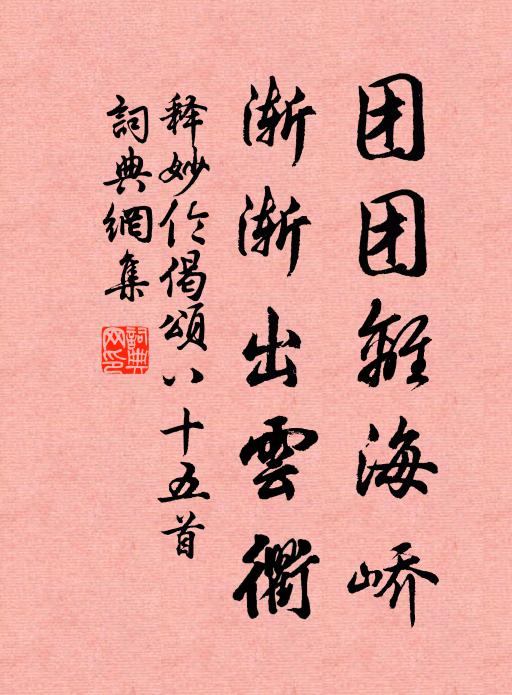 团团離海峤
渐渐出雲衢
释妙伦偈頌八十五首
詞典網集
詞典網印